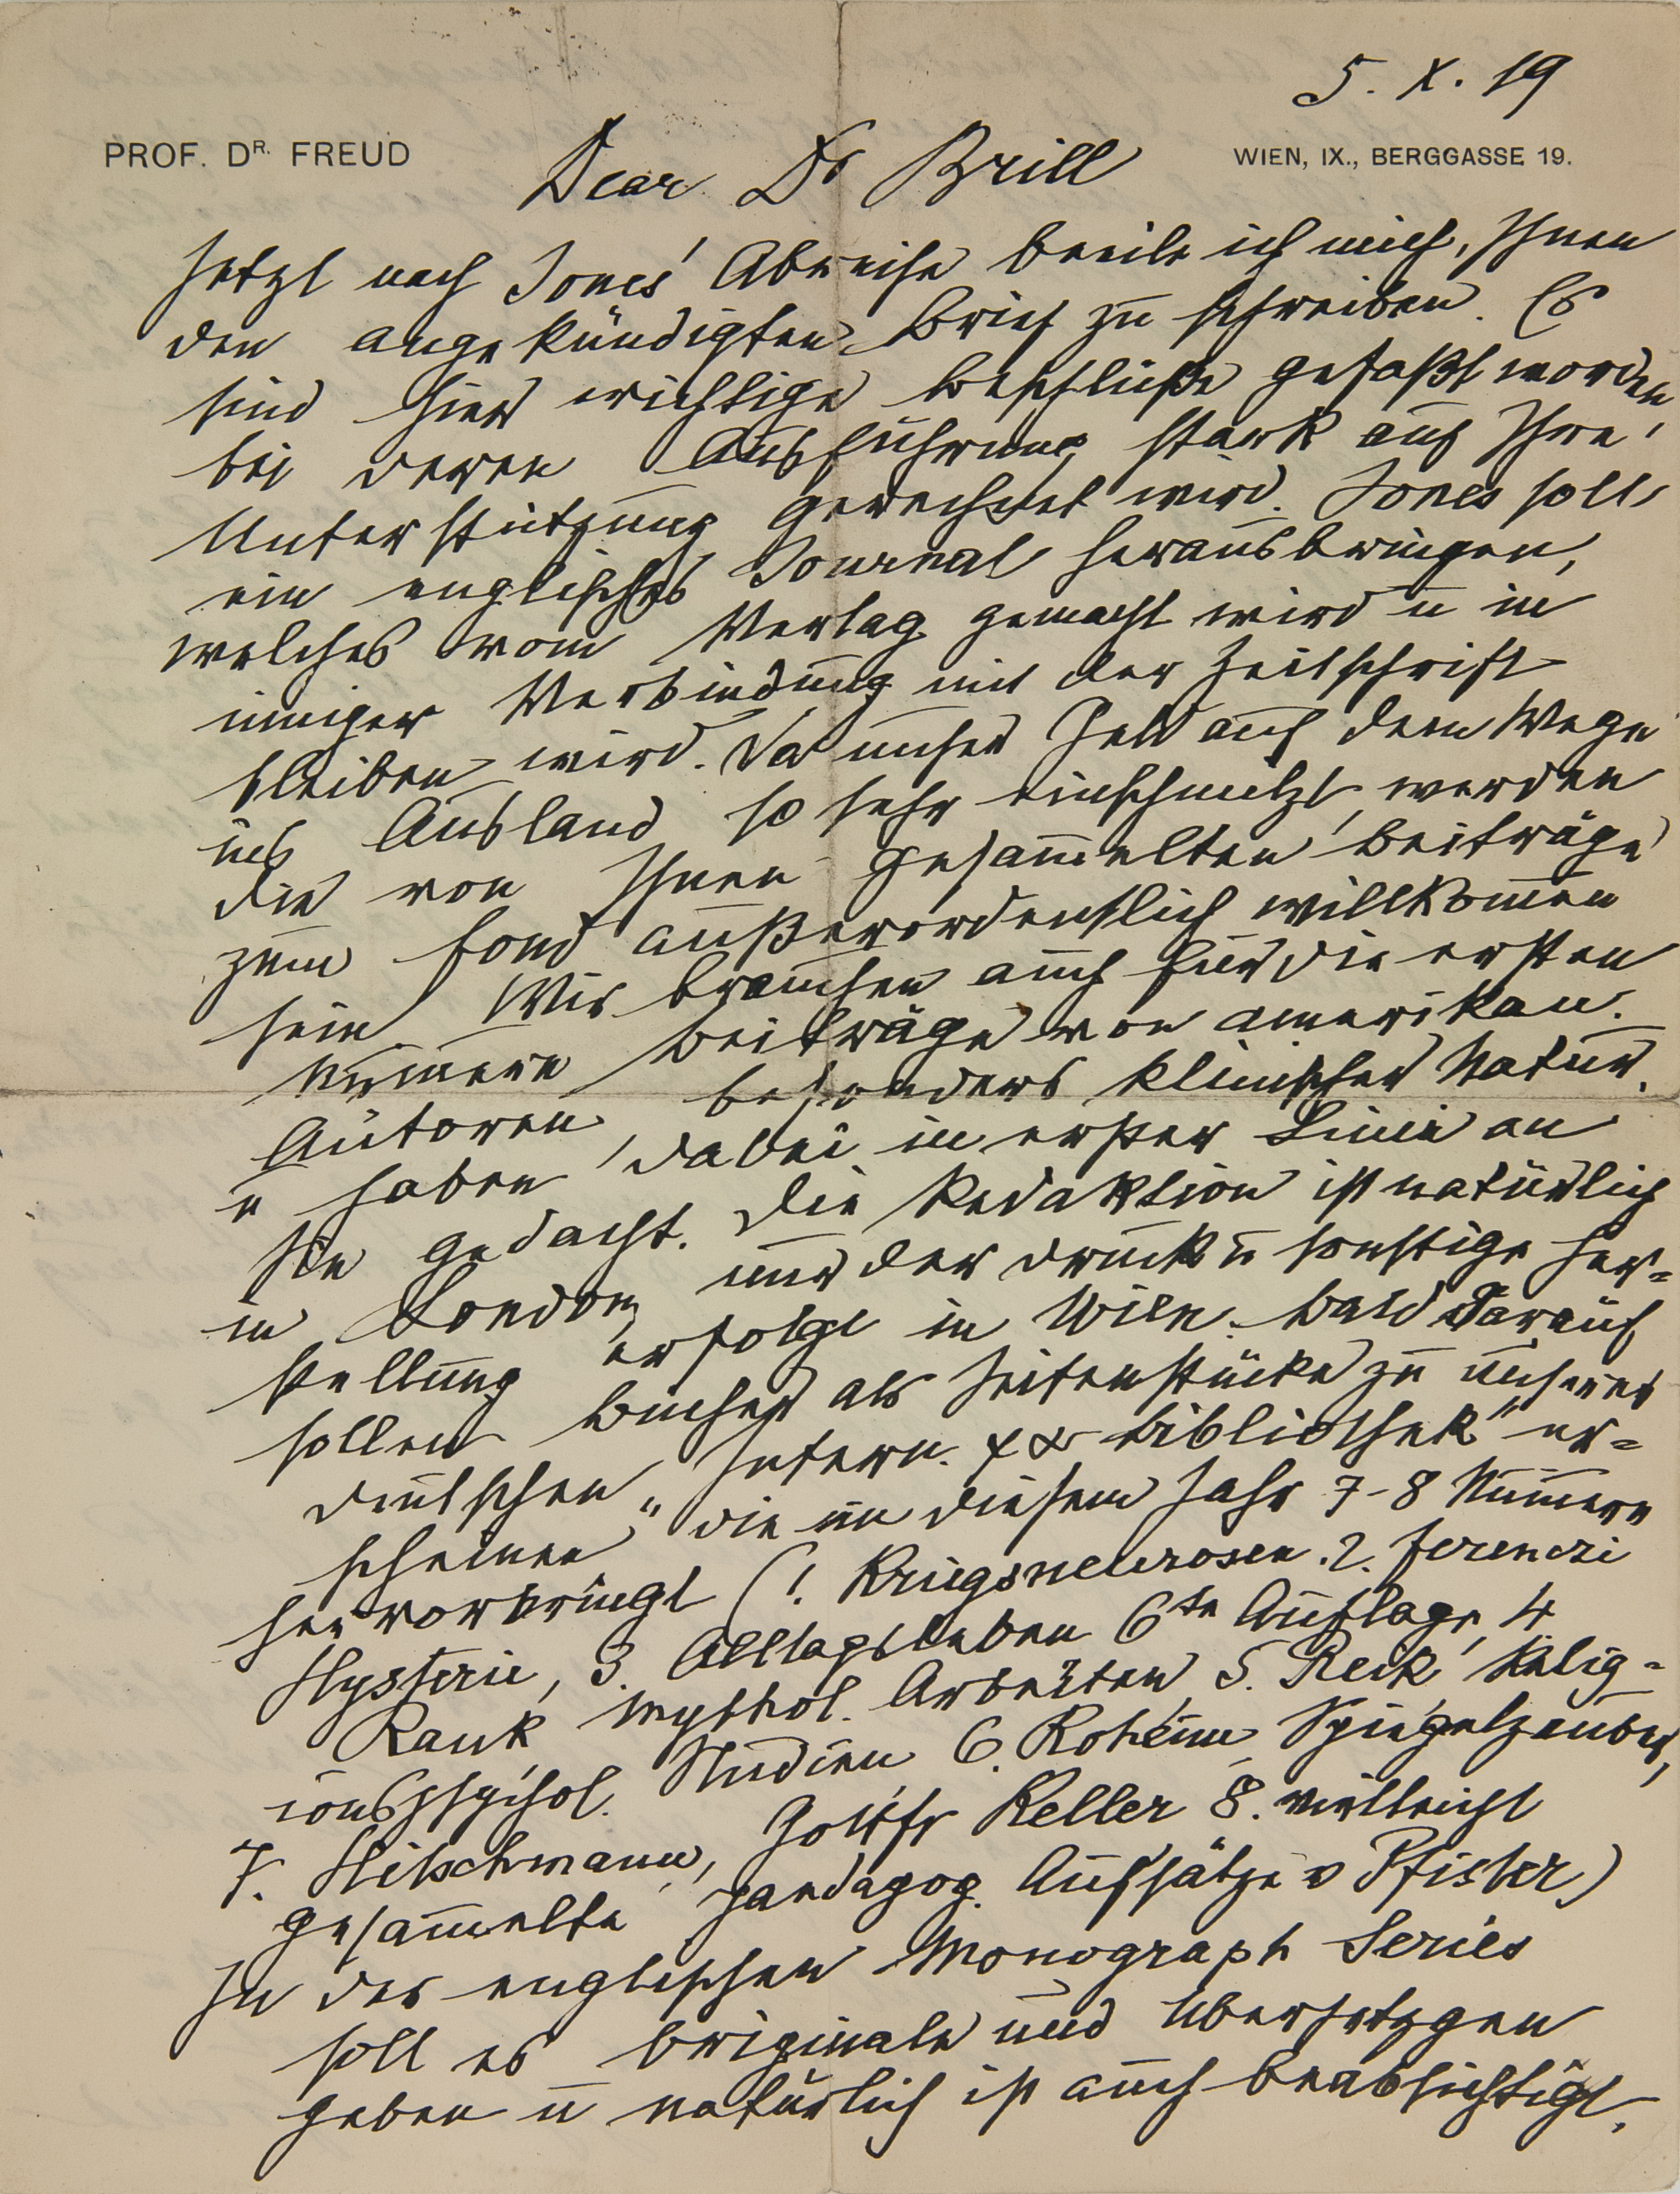 5. X. 19
PROF. DR. FREUD
WIEN, IX., BERGGASSE 19.
Dear Dr Brill
Jetzt nach Jones' Abreise beeile ich mich, Ihnen
den angekündigten Brief zu schreiben. Es
sind hier wichtige Beschlüße gefaßt worden
bei deren Ausführung stark auf Ihre
Unterstützung gerechnet wird. Jones soll
ein englisches Journal herausbringen,
welches vom Verlag gemacht wird u in
inniger Verbindung mit der Zeitschrift
bleiben wird. Da unser Geld auf dem Wege
ins Ausland so sehr einschmilzt, werden
die von Ihnen gesammelten Beiträge
zum Fond außerordentlich willkommen
sein. Wir brauchen auch für die ersten
Nummern Beiträge von amerikan.
Autoren besonders klinischer Natur,
u haben dabei in erster Linie an
Sie gedacht. Die Redaktion ist natürlich
in London, nur der Druck u sonstige Her-
stellung erfolgt in Wien. Bald darauf
sollen Bücher als Seitenstücke zu unserer
deutschen „Intern. ψα Bibliothek" er-
scheinen, die in diesem Jahr 7-8 Nummern
hervorbringt (1. Kriegsneurosen. 2. Ferenczi
Hysterie, 3. Alltagsleben 6te Auflage, 4
Rank mythol. Arbeiten, 5. Reik Relig-
ionspsychol. Studien 6. Roheim Spiegelzauber,
7. Hitschmann, Gottfr Keller 8. vielleicht
gesammelte paedagog. Aufsätze v Pfister)
In der englischen Monograph Series
soll es Originale und Übersetzgen
geben u natürlich ist auch beabsichtigt,